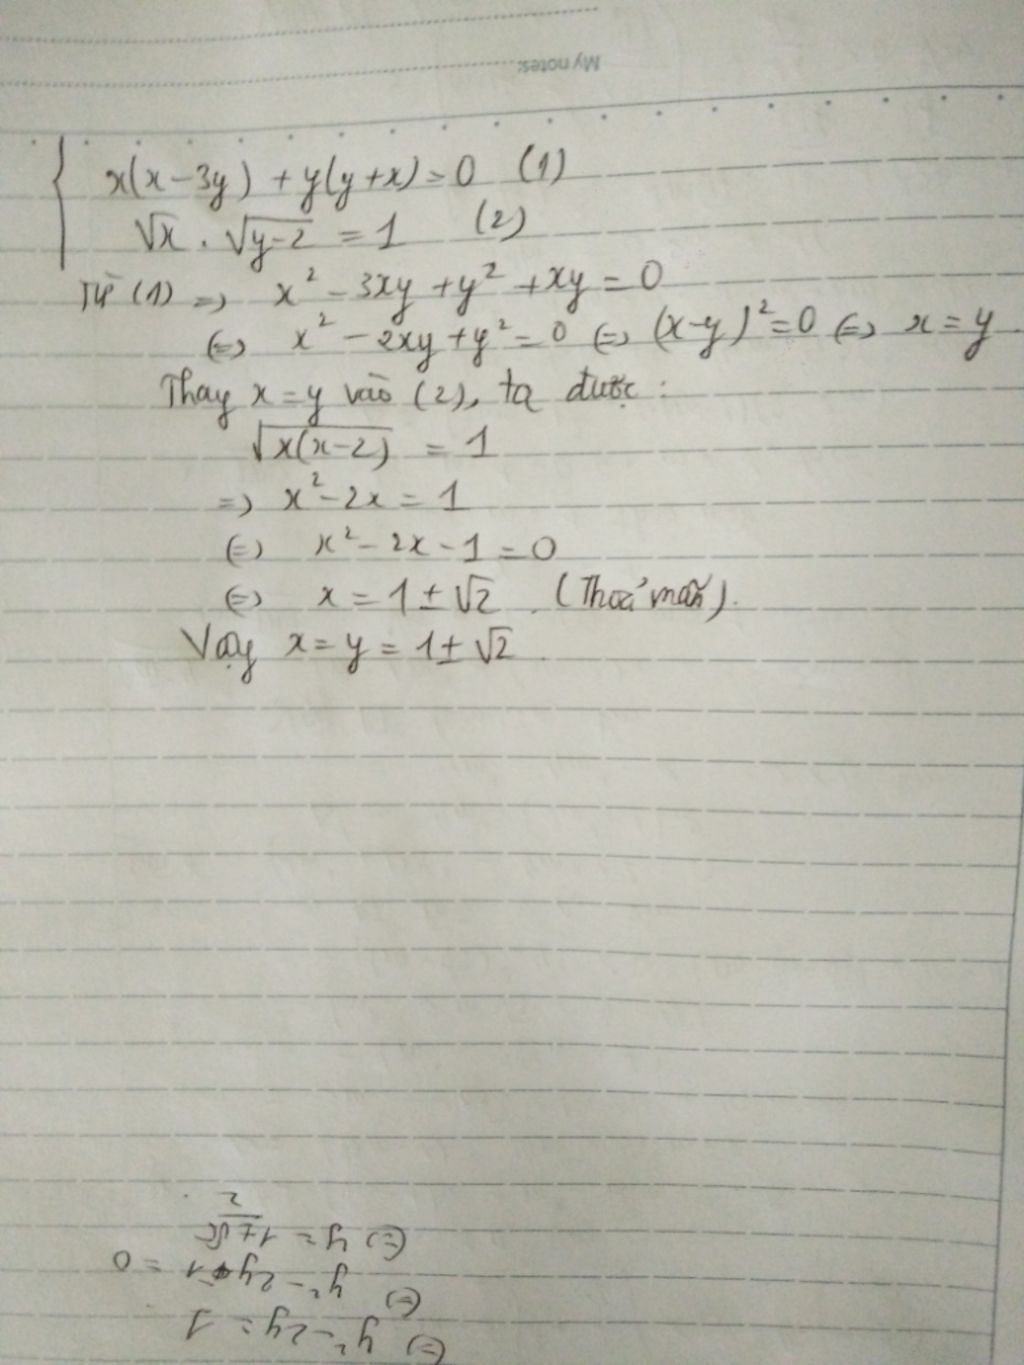 My notes:
x(x-3y) + y(y+x) = 0 (1)
√x . √y-2 = 1 (2)
Từ (1) => x² - 3xy + y² + xy = 0
(=) x² - 2xy + y² = 0 (=) (x-y)² = 0 (=) x = y
Thay x = y vào (2), ta được:
√x(x-2) = 1
=) x² - 2x = 1
(=) x² - 2x - 1 = 0
(=) x = 1 ± √2 (Thoả mãn).
Vậy x = y = 1 ± √2
(=) y² - 2y = 1